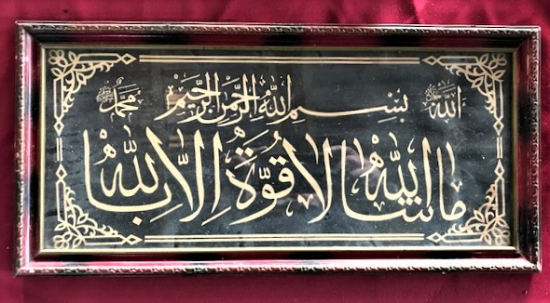 الله بسم الله الرحمن الرحيم محمد
ما شاء الله لا قوة إلا بالله